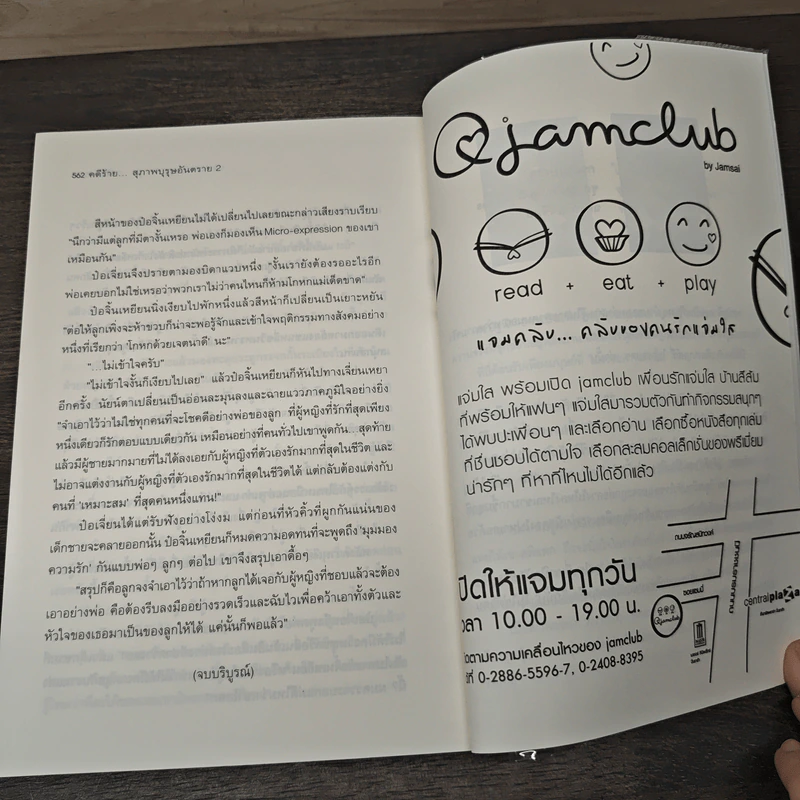 562 คดีร้าย... สุภาพบุรุษอันตราย 2
สีหน้าของป๋อจิ้นเหยียนไม่ได้เปลี่ยนไปเลยขณะกล่าวเสียงราบเรียบ
"นึกว่ามีแต่ลูกที่มีตางั้นเหรอ พ่อเองก็มองเห็น Micro-expression ของเขา
เหมือนกัน"
ป๋อเจี่ยนจึงปรายตามองบิดาแวบหนึ่ง "งั้นเรายังต้องรออะไรอีก
พ่อเคยบอกไม่ใช่เหรอว่าพวกเราไม่ว่าคนไหนก็ห้ามโกหกแม่เด็ดขาด"
ป๋อจิ้นเหยียนนิ่งเงียบไปพักหนึ่งแล้วสีหน้าก็เปลี่ยนเป็นเยาะหยัน
"ต่อให้ลูกเพิ่งจะห้าขวบก็น่าจะพอรู้จักและเข้าใจพฤติกรรมทางสังคมอย่าง
หนึ่งที่เรียกว่า 'โกหกด้วยเจตนาดี' นะ"
"...ไม่เข้าใจครับ"
"ไม่เข้าใจงั้นก็เงียบไปเลย" แล้วป๋อจิ้นเหยียนก็หันไปทางเจี่ยนเหยา
อีกครั้ง นัยน์ตาเปลี่ยนเป็นอ่อนละมุนลงและฉายแววภาคภูมิใจอย่างยิ่ง
"จำเอาไว้ว่าไม่ใช่ทุกคนที่จะโชคดีอย่างพ่อของลูก ที่ผู้หญิงที่รักที่สุดเพียง
หนึ่งเดียวก็รักตอบแบบเดียวกัน เหมือนอย่างที่คนทั่วไปเขาพูดกัน...สุดท้าย
แล้วมีผู้ชายมากมายที่ไม่ได้ลงเอยกับผู้หญิงที่ตัวเองรักมากที่สุดในชีวิต และ
ไม่อาจแต่งงานกับผู้หญิงที่ตัวเองรักมากที่สุดในชีวิตได้ แต่กลับต้องแต่งกับ
คนที่ 'เหมาะสม' ที่สุดคนหนึ่งแทน!"
ป๋อเจี่ยนได้แต่รับฟังอย่างโง่งม แต่ก่อนที่หัวคิ้วที่ผูกกันแน่นของ
เด็กชายจะคลายออกนั้น ป๋อจิ้นเหยียนก็หมดความอดทนที่จะพูดถึง 'มุมมอง
ความรัก' กันแบบพ่อๆ ลูกๆ ต่อไป เขาจึงสรุปเอาดื้อๆ
"สรุปก็คือลูกจงจำเอาไว้ว่าถ้าหากลูกได้เจอกับผู้หญิงที่ชอบแล้วจะต้อง
เอาอย่างพ่อ คือต้องรีบลงมืออย่างรวดเร็วและฉับไวเพื่อคว้าเอาทั้งตัวและ
หัวใจของเธอมาเป็นของลูกให้ได้ แค่นั้นก็พอแล้ว"
(จบบริบูรณ์)
@jamclub
by Jamsai
read + eat + play
แจมคลับ... คลับของคนรักแจ่มใส
แจ่มใส พร้อมเปิด jamclub เพื่อนรักแจ่มใส บ้านสีส้ม
ที่พร้อมให้แฟนๆ แจ่มใสมารวมตัวกันทำกิจกรรมสนุกๆ
ได้พบปะเพื่อนๆ และเลือกอ่าน เลือกซื้อหนังสือทุกเล่ม
ที่ชื่นชอบได้ตามใจ เลือกสะสมคอลเล็กชั่นของพรีเมี่ยม
น่ารักๆ ที่หาที่ไหนไม่ได้อีกแล้ว
ปิดให้แจมทุกวัน
วลา 10.00 - 19.00 น.
ตามความเคลื่อนไหวของ jamclub
ที่ 0-2886-5596-7, 0-2408-8395
ถนนจรัญสนิทวงศ์
@jamclub
centralplaza